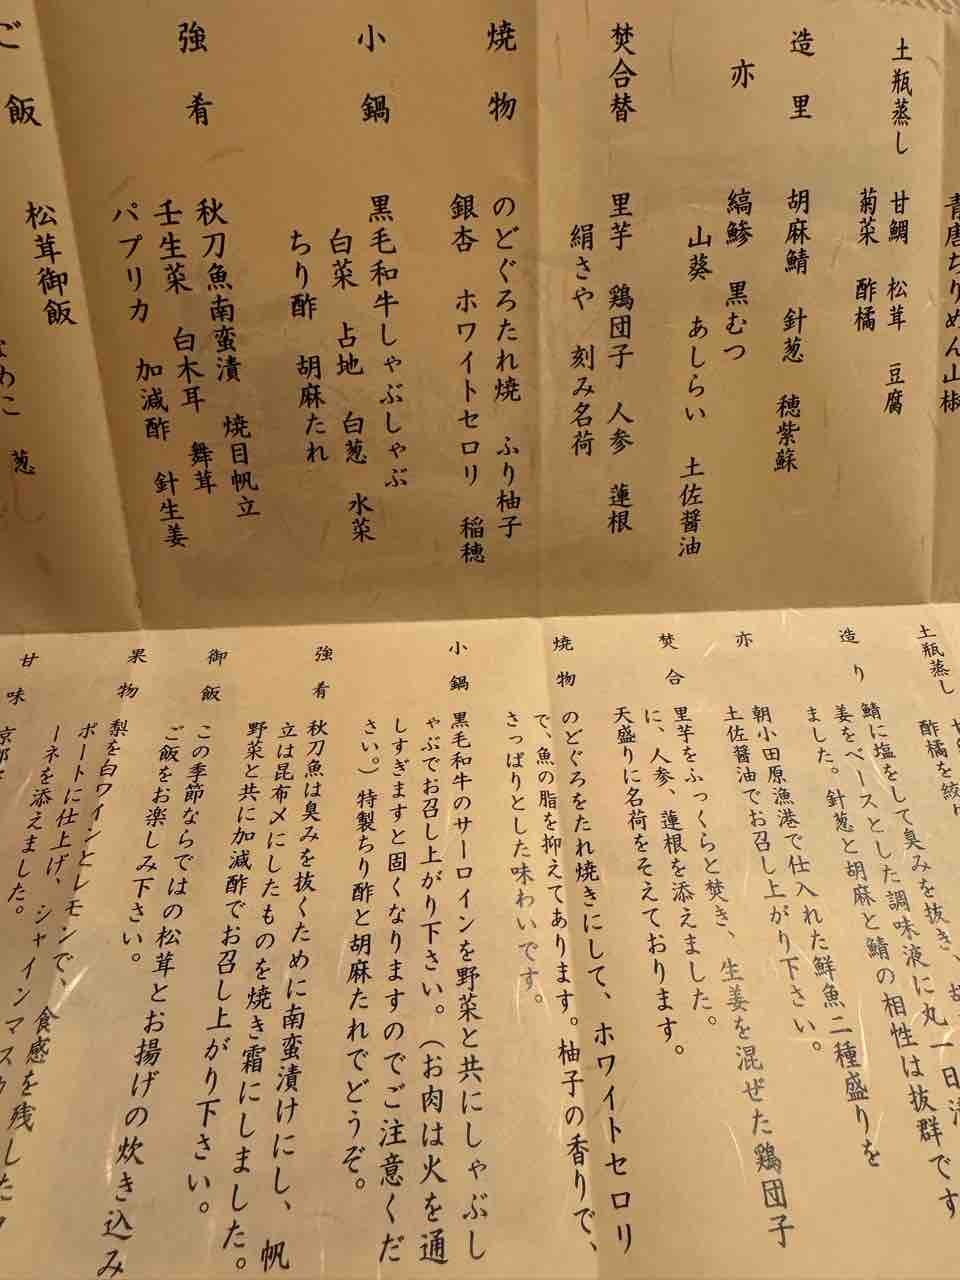 青唐ちりめん山椒
土瓶蒸し 甘鯛 松茸 豆腐
菊菜 酢橘
造里 胡麻鯖 針葱 穂紫蘇
亦 縞鯵 黒むつ
山葵 あしらい 土佐醤油
焚合替 里芋 鶏団子 人参 蓮根
絹さや 刻み名荷
焼物 のどぐろたれ焼 ふり柚子
銀杏 ホワイトセロリ 稲穂
小鍋 黒毛和牛しゃぶしゃぶ
白菜 占地 白葱 水菜
ちり酢 胡麻たれ
強肴 秋刀魚南蛮漬 焼目帆立
壬生菜 白木耳 舞茸
パプリカ 加減酢 針生姜
ご飯 松茸御飯
なめこ 葱
土瓶蒸し
酢橘を絞り
造り 鯖に塩をして臭みを抜き、胡
姜をベースとした調味液に丸一日漬
ました。針葱と胡麻と鯖の相性は抜群です
亦 朝小田原漁港で仕入れた鮮魚二種盛りを
土佐醤油でお召し上がり下さい。
焚合 里芋をふっくらと焚き、生姜を混ぜた鶏団子
に、人参、蓮根を添えました。
天盛りに名荷をそえております。
焼物 のどぐろをたれ焼きにして、ホワイトセロリ
で、魚の脂を抑えてあります。柚子の香りで、
さっぱりとした味わいです。
小鍋 黒毛和牛のサーロインを野菜と共にしゃぶし
ゃぶでお召し上がり下さい。（お肉は火を通
しすぎますと固くなりますのでご注意くだ
さい。）特製ちり酢と胡麻たれでどうぞ。
強肴 秋刀魚は臭みを抜くために南蛮漬けにし、帆
立は昆布〆にしたものを焼き霜にしました。
野菜と共に加減酢でお召し上がり下さい。
御飯 この季節ならではの松茸とお揚げの炊き込み
ご飯をお楽しみ下さい。
果物 梨を白ワインとレモンで、食感を残したコ
ポートに仕上げ、シャインマスカ
ーネを添えました。
甘味 京都